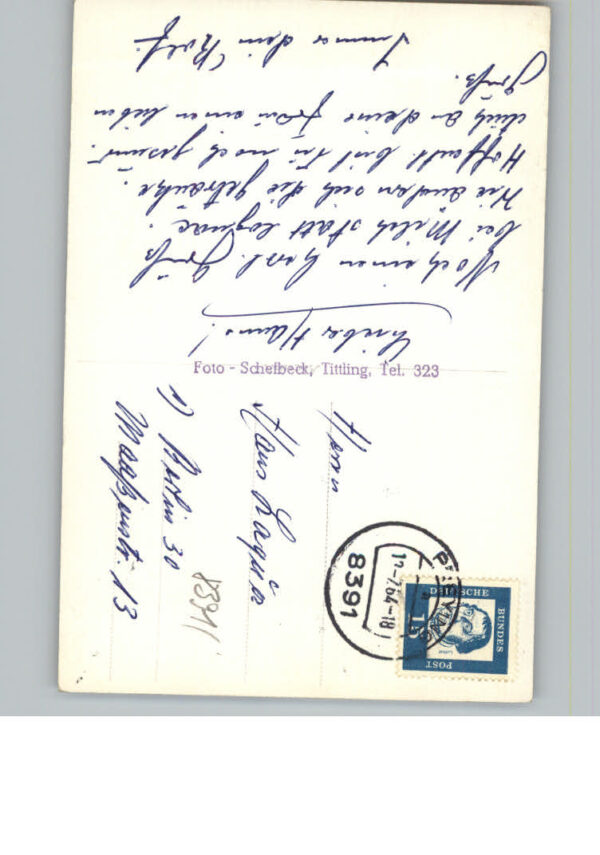 Lieber Hanns!
Noch einen herzl. Gruß
bei Milch statt Cognac.
Wie ändern sich die Getränke.
Hoffentl. bist Du noch gesund.
auch an deine Frau einen lieben
Gruß.
Immer dein Rolf.
Foto - Schefbeck, Tittling, Tel. 323
Herrn
Hans
1) Berlin 30
Maaßenstr. 13
8391
8391
-7.64-18
DEUTSCHE
BUNDES
POST
15
Luther